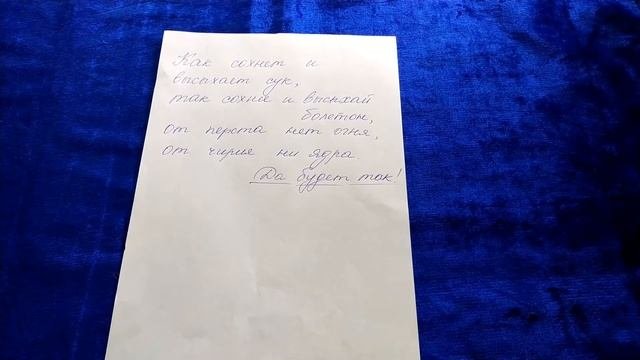 Как сохнет и
высыхает сук,
так сохни и высыхай
болетон,
от перста нет огня,
от чирья ни ядра
Да будет так!